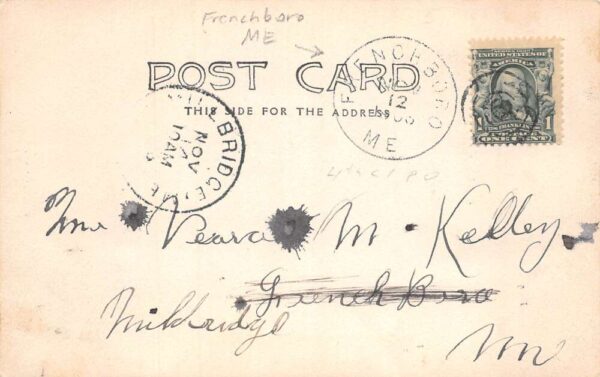 Frenchboro
ME
POST CARD
THIS SIDE FOR THE ADDRESS
FRENCHBORO
NOV
12
ME
MILLBRIDGE, ME
NOV
14
10AM
UNITED STATES OF AMERICA
FRANKLIN
1 ONE CENT 1
M. Kelley
French Boro
Millbridge